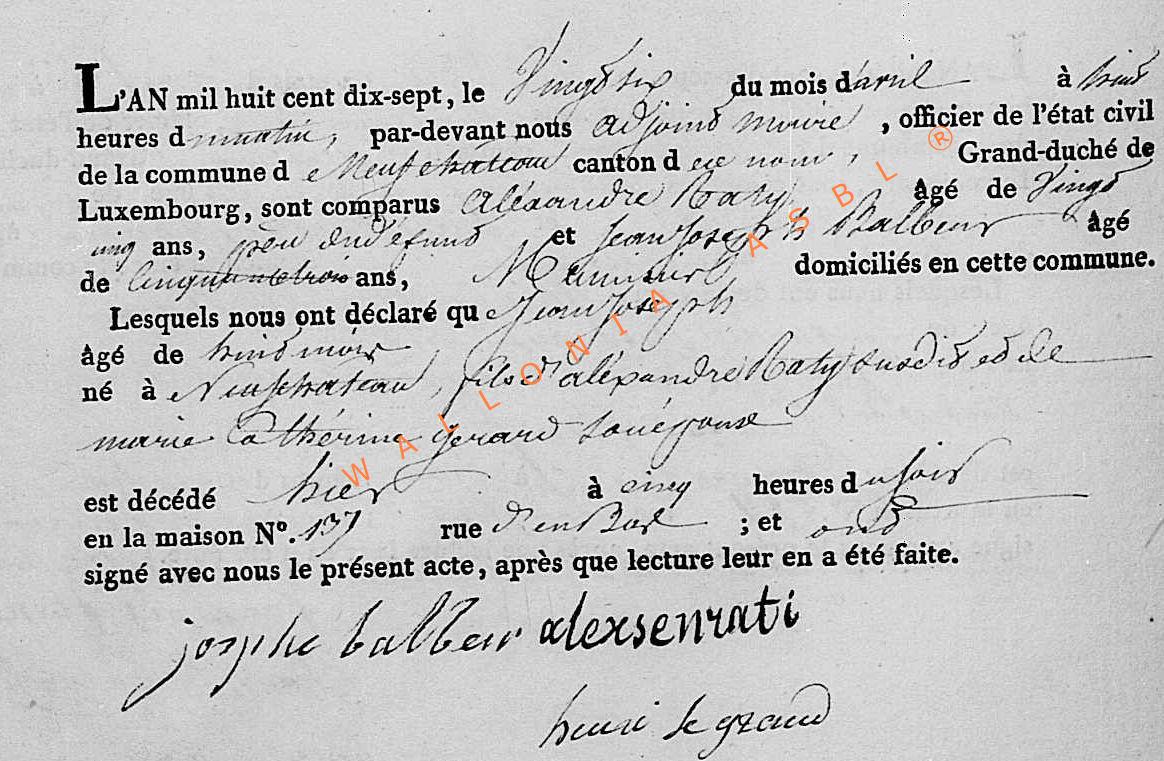 L'AN mil huit cent dix-sept, le Vingt six du mois d'avril à huit
heures d u matin, par-devant nous adjoint maire, officier de l'état civil
de la commune d e Neufchateau canton d ce nom, Grand-duché de
Luxembourg, sont comparus Aléxandre Raty âgé de Vingt
cinq ans, père du défunt et Jean Joseph Balbeur âgé
de Cinquante trois ans, Menuisier domiciliés en cette commune.
Lesquels nous ont déclaré qu e Jean Joseph
âgé de huit mois
né à Neufchateau, fils d'aléxandre Raty susdit et de
marie Cathérine gerard son épouse
est décédé hier à cinq heures d u soir
en la maison N°. 137 rue d'en Bas ; et ont
signé avec nous le présent acte, après que lecture leur en a été faite.
josephe balbeur alexsenrati
henri le grand
WALLONIA ASBL ®